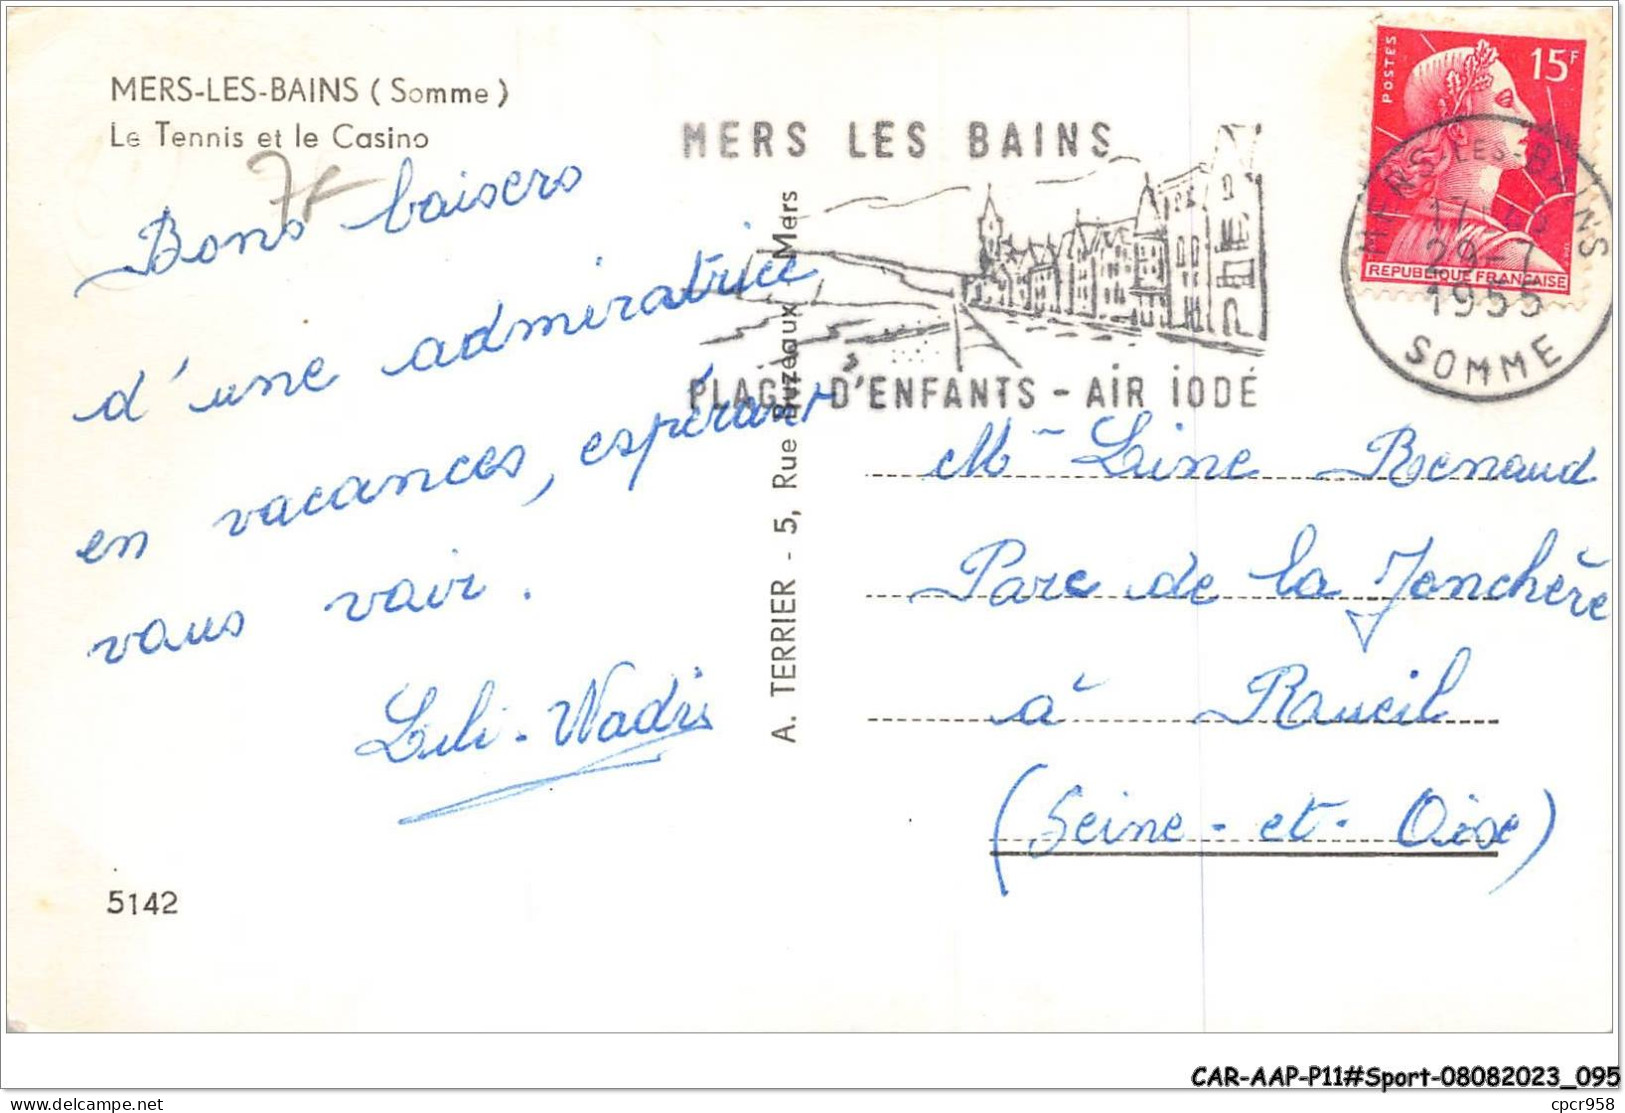 MERS-LES-BAINS (Somme)
Le Tennis et le Casino
Bons baisers
d'une admiratrice
en vacances, espérant
vous voir.
Lili-Nadis
5142
A. TERRIER - 5, Rue Buzeaux Mers
MERS LES BAINS
PLAGE D'ENFANTS - AIR IODÉ
POSTES
15F
REPUBLIQUE FRANÇAISE
MERS-LES-BAINS
29-7
1955
SOMME
Mme Line Renaud
Parc de la Jonchère
à Rueil
(Seine-et-Oise)
CAR-AAP-P11#Sport-08082023_095
delcampe.net
cpcr958